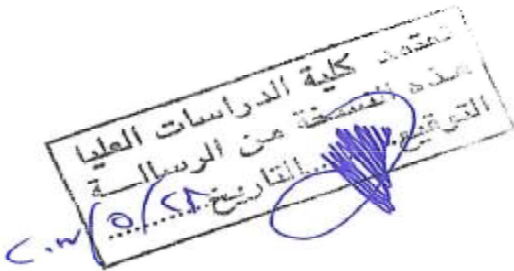 تعتمد كلية الدراسات العليا
هذه النسخة من الرسالــة
التوقيع.......التاريخ ٢٨/٥/